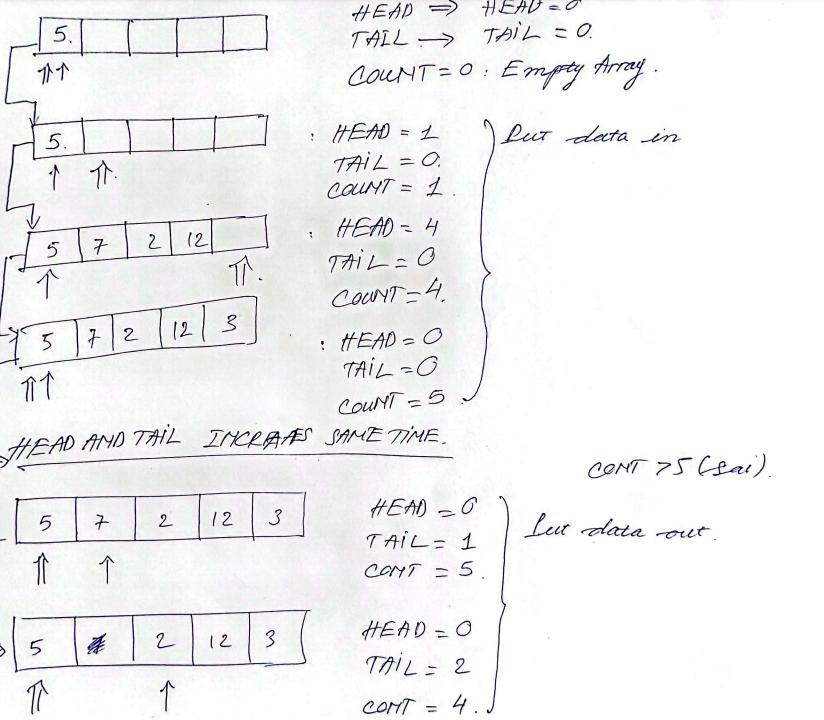 HEAD ⇒ HEAD = 0
5.
TAIL → TAIL = 0.
COUNT = 0 : Empty Array.
5.
: HEAD = 1
TAIL = 0.
COUNT = 1.
Put data in
5 7 2 12
: HEAD = 4
TAIL = 0
COUNT = 4.
5 7 2 12 3
: HEAD = 0
TAIL = 0
COUNT = 5.
HEAD AND TAIL SAME TIME.
CONT > 5 (Sai).
5 7 2 12 3
HEAD = 0
TAIL = 1
CONT = 5.
Put data out.
5 2 12 3
HEAD = 0
TAIL = 2
CONT = 4.